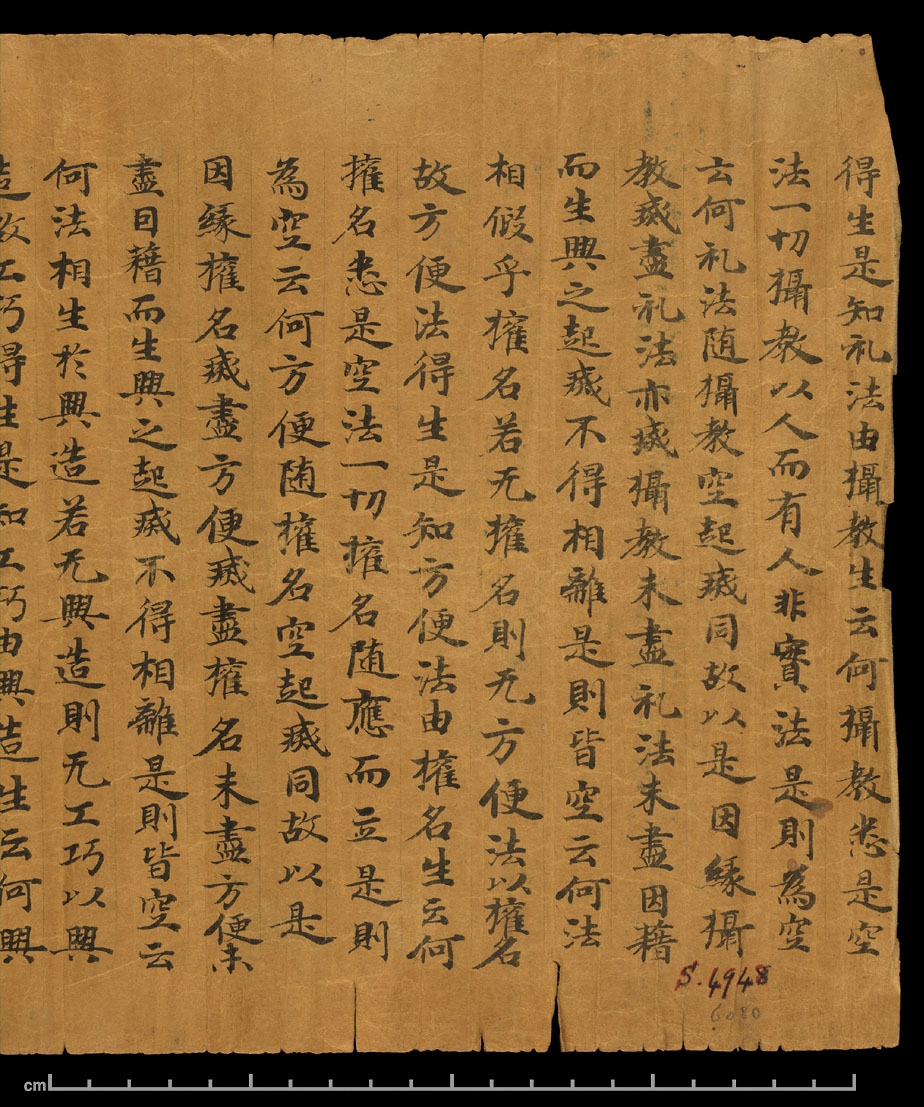 得生是知礼法由攝教生云何攝教悉是空
法一切攝教以人而有人非實法是則為空
云何礼法随攝教空起滅同故以是因緣攝
教滅盡礼法亦滅攝教未盡礼法未盡因藉
而生興之起滅不得相離是則皆空云何法
相假乎權名若无權名則无方便法以權名
故方便法得生是知方便法由權名生云何
權名悉是空法一切權名随應而立是則
為空云何方便随權名空起滅同故以是
因緣權名滅盡方便滅盡權名未盡方便未
盡因藉而生興之起滅不得相離是則皆空云
何法相生於興造若无興造則无工巧以興
造故工巧得生是知工巧由興造生云何興
S.4948
6080
cm